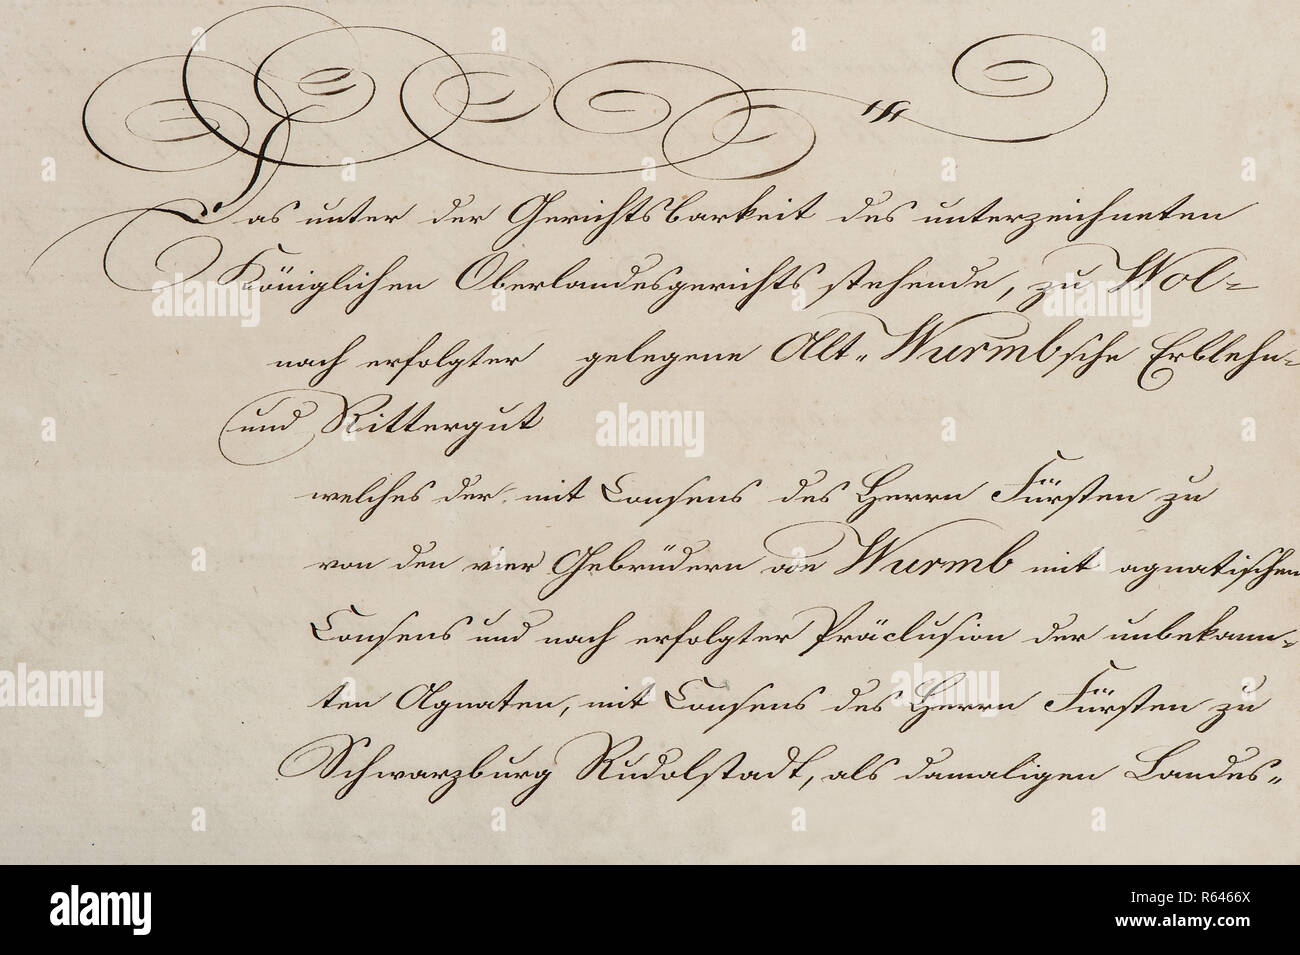 Das unter der Gerichtsbarkeit des unterzeichneten
Königlichen Oberlandesgerichts stehende, zu Wol=
nach erfolgter gelegene Alt=Wurmbsche Erblehn=
und Rittergut
welches der mit Consens des Herrn Fürsten zu
von den vier Gebrüdern von Wurmb mit agnatischen
Consens und nach erfolgter Präclusion der unbekann=
ten Agnaten, mit Consens des Herrn Fürsten zu
Schwarzburg Rudolstadt, als damaligen Landes=
alamy
Image ID: R6466X
www.alamy.com